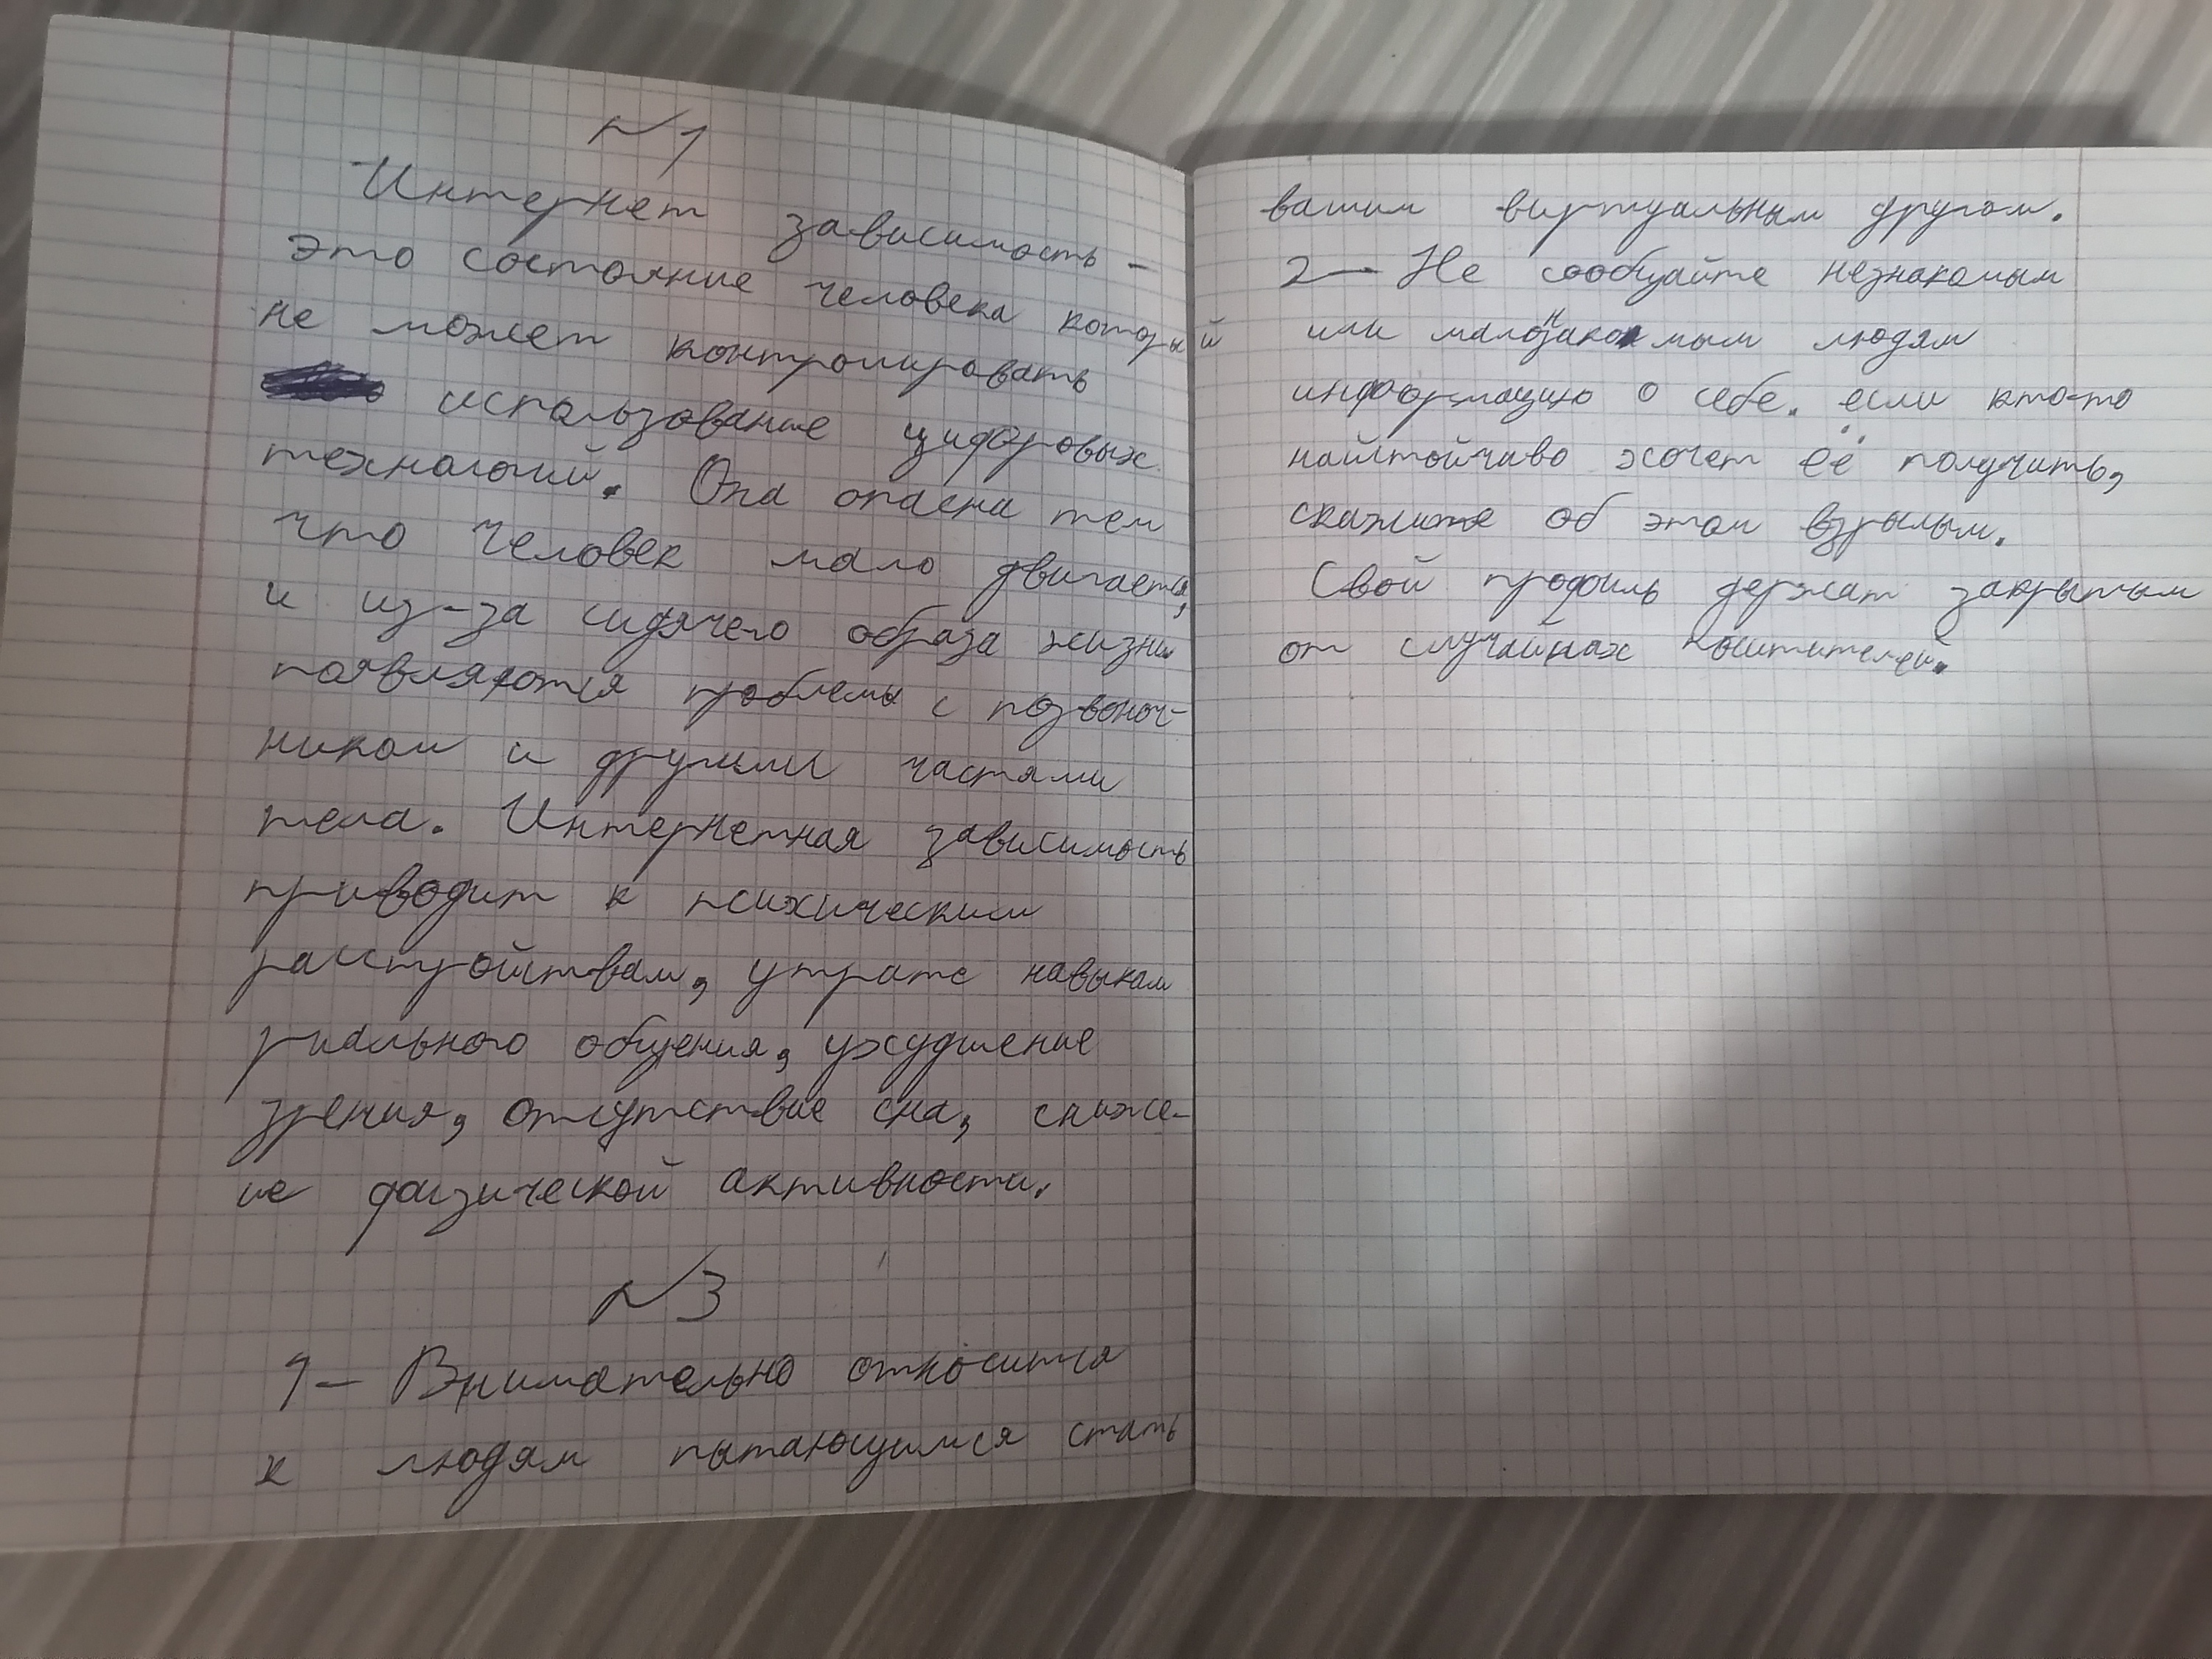 №1
Интернет зависимость -
это состояние человека который
не может контролировать
использование цифровых
технологий. Она опасна тем
что человек мало двигается,
и из-за сидячего образа жизни
появляются проблемы с позвоноч-
ником и другими частями
тела. Интернетная зависимость
приводит к психическим
расстройствам, утрате навыкам
риального общения, ухудшение
зрения, отсутствие сна, сниже-
ие физической активности.
№3
1- Внимательно относится
к людям пытающимся стать
вашим виртуальным другом.
2- Не сообщайте незнакомым
или малознакомым людям
информацию о себе. если кто-то
найстойчиво хочет её получить,
скажите об этом взрылым.
Свой профиль держат закрытым
от случайнах